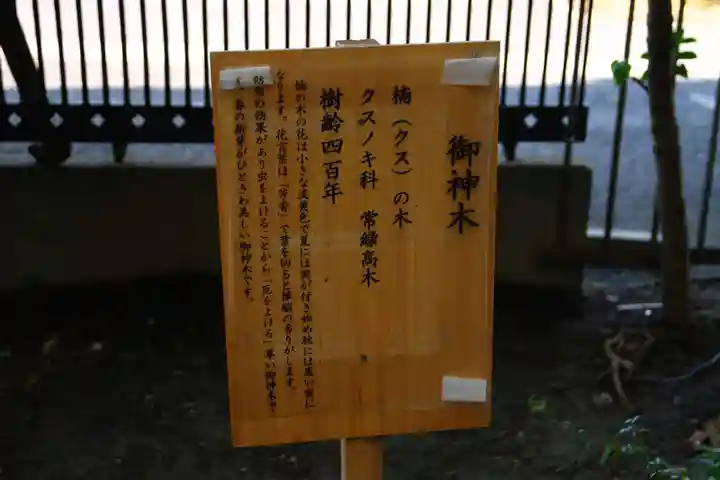 御神木
楠（クス）の木
クスノキ科　常緑高木
樹齢四百年
楠の木の花は小さな淡黄色で夏には実が付き始め秋には黒い実に
なります。花言葉は「芳香」で葉を切ると樟脳の香りがします。
防虫の効果があり虫をよけることから「厄をよける」尊い御神木です
春の新芽がひときわ美しい御神木です。